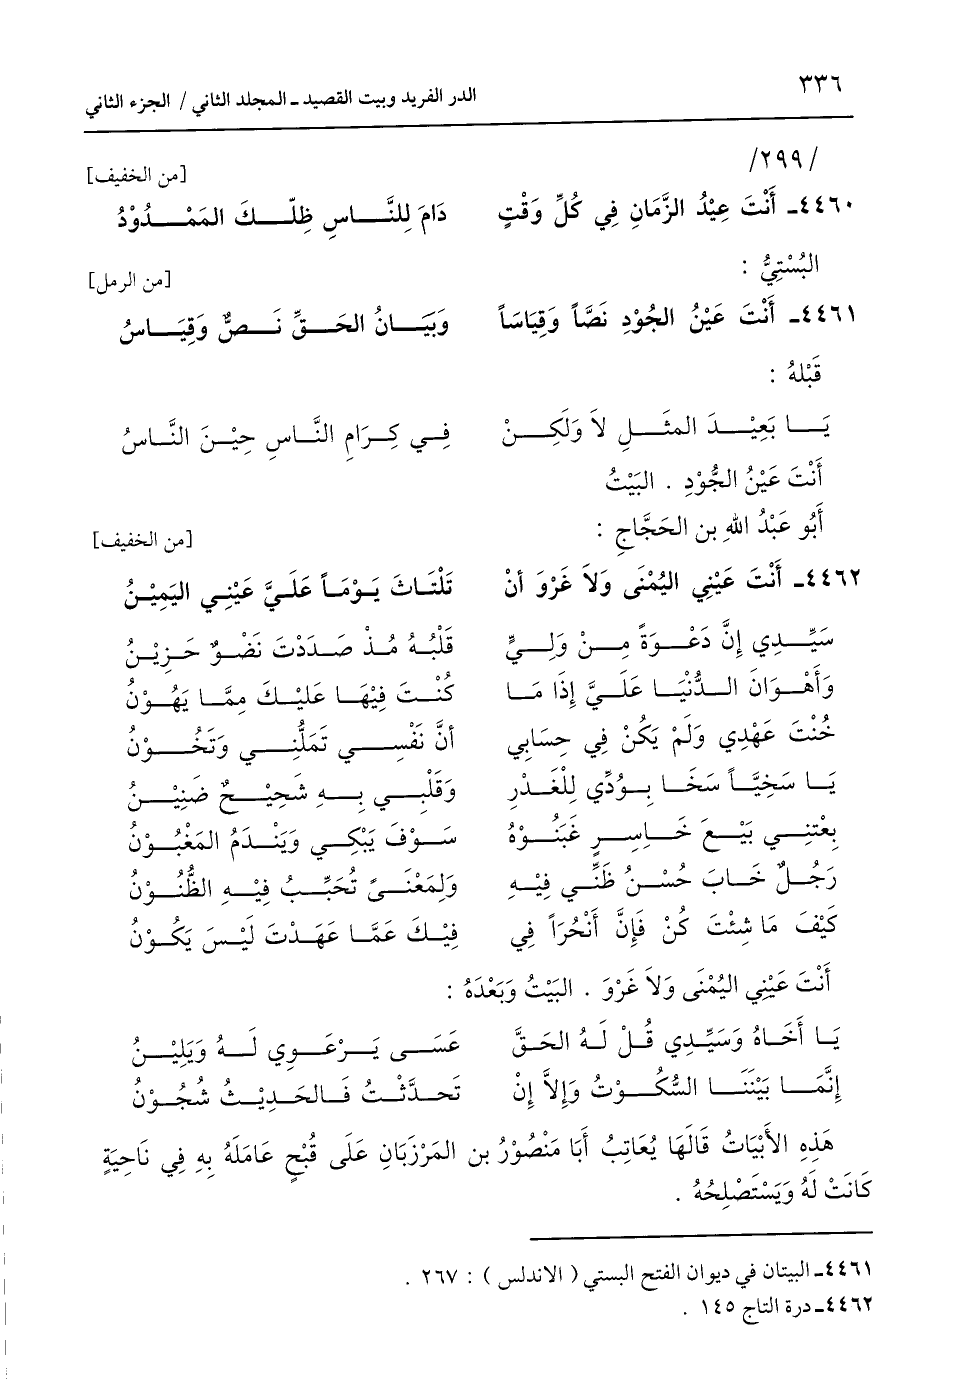 ٣٣٦ الدر الفريد وبيت القصيد ـ المجلد الثاني / الجزء الثاني
/٢٩٩/
[من الخفيف]
٤٤٦٠ـ أَنْتَ عِيْدُ الزَّمَانِ فِي كُلِّ وَقْتٍ دَامَ لِلنَّاسِ ظِلّكَ المَمْدُوْدُ
البُسْتِيُّ : [من الرمل]
٤٤٦١ـ أَنْتَ عَيْنُ الجُوْدِ نَصَّاً وَقِيَاسَاً وَبَيَانُ الحَقِّ نَصٌّ وَقِيَاسُ
قَبْلهُ :
يَا بَعِيْدَ المثَلِ لاَ وَلَكِنْ فِي كِرَامِ النَّاسِ حِيْنَ النَّاسُ
أَنْتَ عَيْنُ الجُّوْدِ . البَيْتُ
أَبُو عَبْدُ اللهِ بن الحَجَّاجِ : [من الخفيف]
٤٤٦٢ـ أَنْتَ عَيْنِي اليُمْنَى وَلاَ غَرْوَ أنْ تَلْتَاثَ يَوْمَاً عَلَيَّ عَيْنِي اليَمِيْنُ
سَيِّدِي إِنَّ دَعْوَةً مِنْ وَلِيٍّ قَلْبُهُ مُذْ صَدَدْتَ نَضْوٌ حَزِيْنُ
وَأَهْوَانَ الدُّنْيَا عَلَيَّ إِذَا مَا كُنْتَ فِيْهَا عَلَيْكَ مِمَّا يَهُوْنُ
خُنْتَ عَهْدِي وَلَمْ يَكُنْ فِي حِسَابِي أَنَّ نَفْسِي تَمَلُّنِي وَتَخُوْنُ
يَا سَخِيَّاً سَخَا بِوُدِّي لِلْغَدْرِ وَقَلْبِي بِهِ شَحِيْحٌ ضَنِيْنُ
بِعْتنِي بَيْعَ خَاسِرٍ غَبَنُوْهُ سَوْفَ يَبْكِي وَيَنْدَمُ المَغْبُوْنُ
رَجُلٌ خَابَ حُسْنُ ظَنِّي فِيْهِ وَلِمَعْنَىً تُخَيِّبُ فِيْهِ الظُّنُوْنُ
كَيْفَ مَا شِئْتَ كُنْ فَإِنَّ أَنْخُرَاً فِي فِيْكَ عَمَّا عَهَدْتَ لَيْسَ يَكُوْنُ
أَنْتَ عَيْنِي اليُمْنَى وَلاَ غَرْوَ . البَيْتُ وَبَعْدَهُ :
يَا أَخَاهُ وَسَيِّدِي قُلْ لَهُ الحَقَّ عَسَى يَرْعَوِي لَهُ وَيَلِيْنُ
إِنَّمَا بَيْنَنَا السُّكُوْتُ وَإِلاَّ إِنْ تَحَدَّثْتُ فَالحَدِيْثُ شُجُوْنُ
هَذِهِ الأَبْيَاتُ قَالَهَا يُعَاتِبُ أَبَا مَنْصُوْرُ بن المَرْزبَانِ عَلَى قُبْحٍ عَامَلَهُ بِهِ فِي نَاحِيةٍ
كَانَتْ لَهُ وَيَسْتَصْلِحُهُ .
٤٤٦١ـ البيتان في ديوان الفتح البستي ( الاندلس ) : ٢٦٧ .
٤٤٦٢ـ درة التاج ١٤٥ .